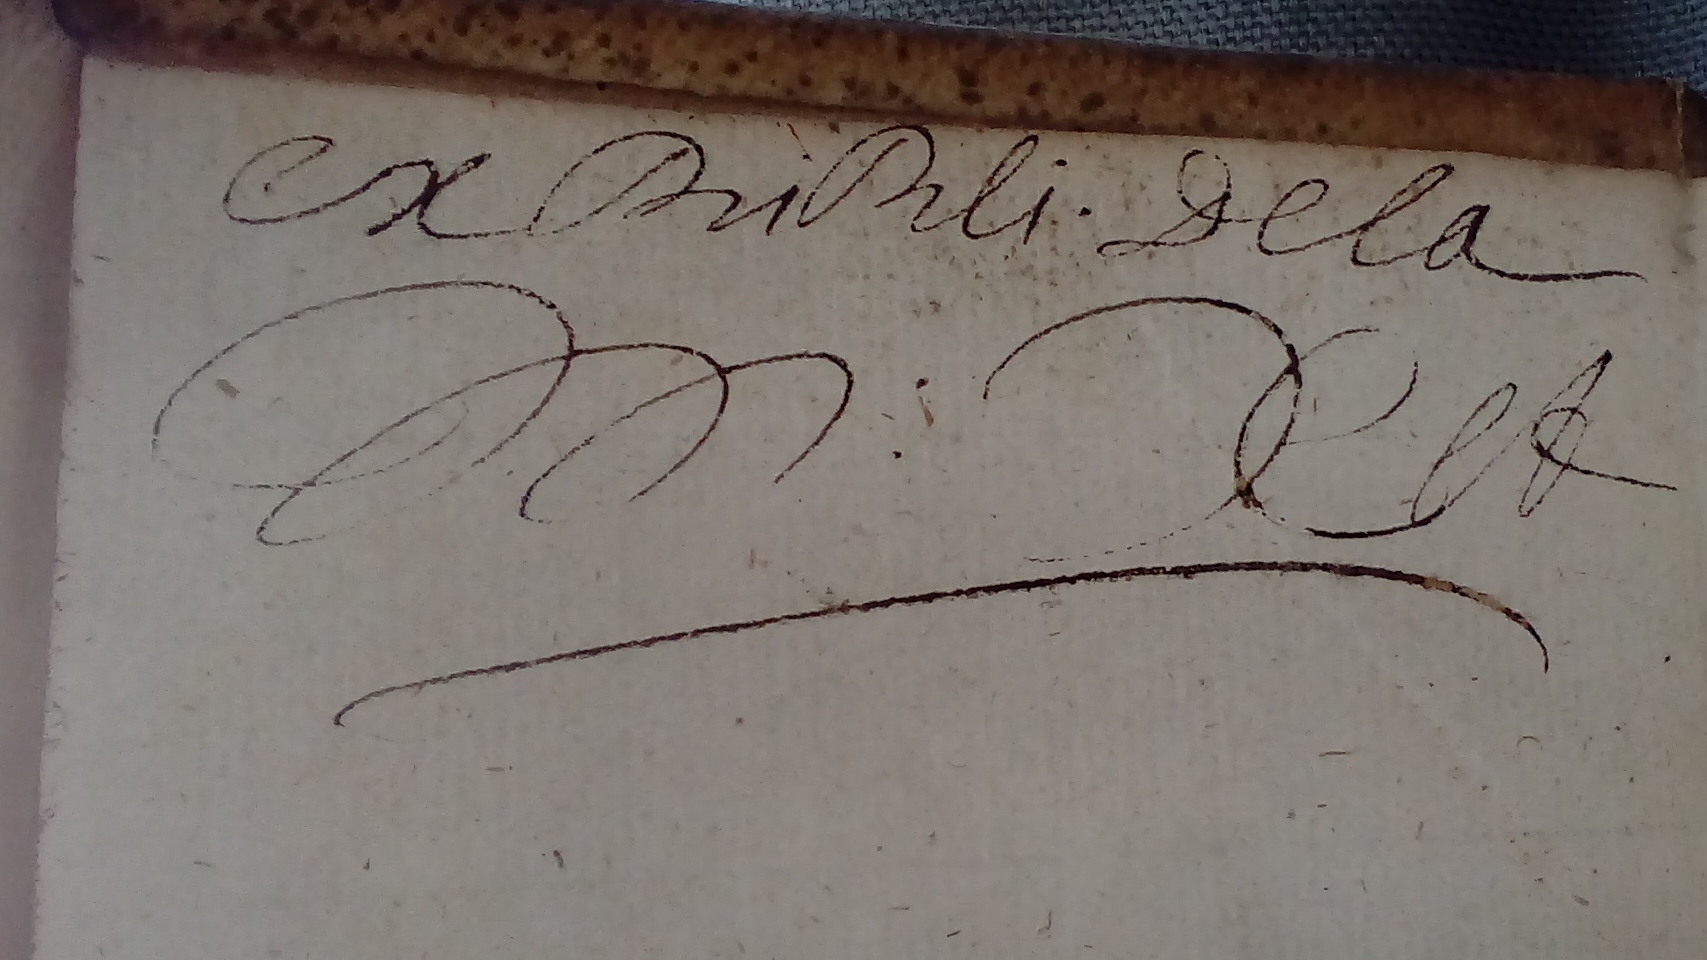 ex BiBli. Dela
M: